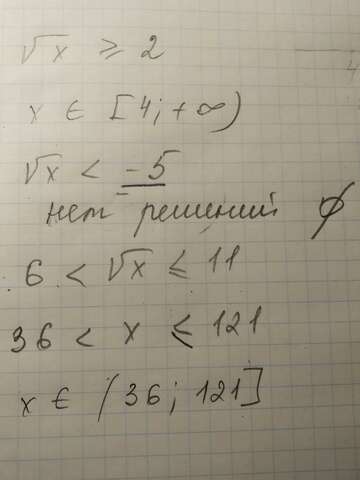 √x ≥ 2
x ∈ [4; +∞)
√x < -5
нет решений ∅
6 < √x ≤ 11
36 < x ≤ 121
x ∈ (36; 121]
4